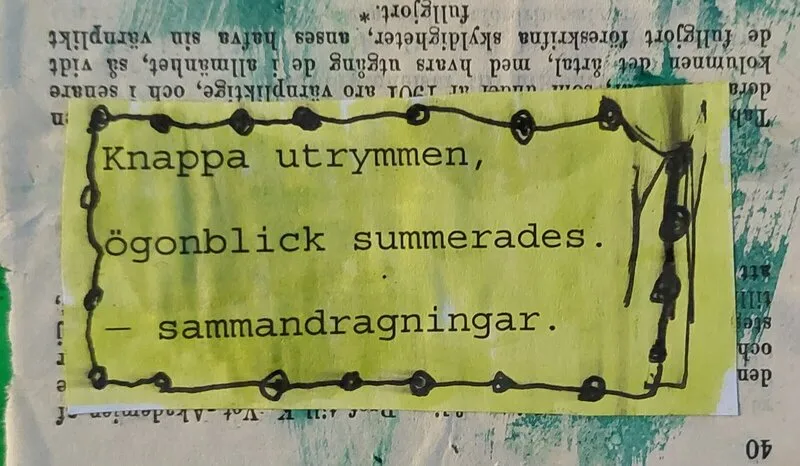 Knappa utrymmen,
ögonblick summerades.
— sammandragningar.
40
den
och
till
att
år 1901 äro värnpliktige, och i senare
kolumnen det årtal, med hvars utgång de i allmänhet, så vidt
de fullgjort föreskrifna skyldigheter, anses hafva sin värnplikt
fullgjort.*